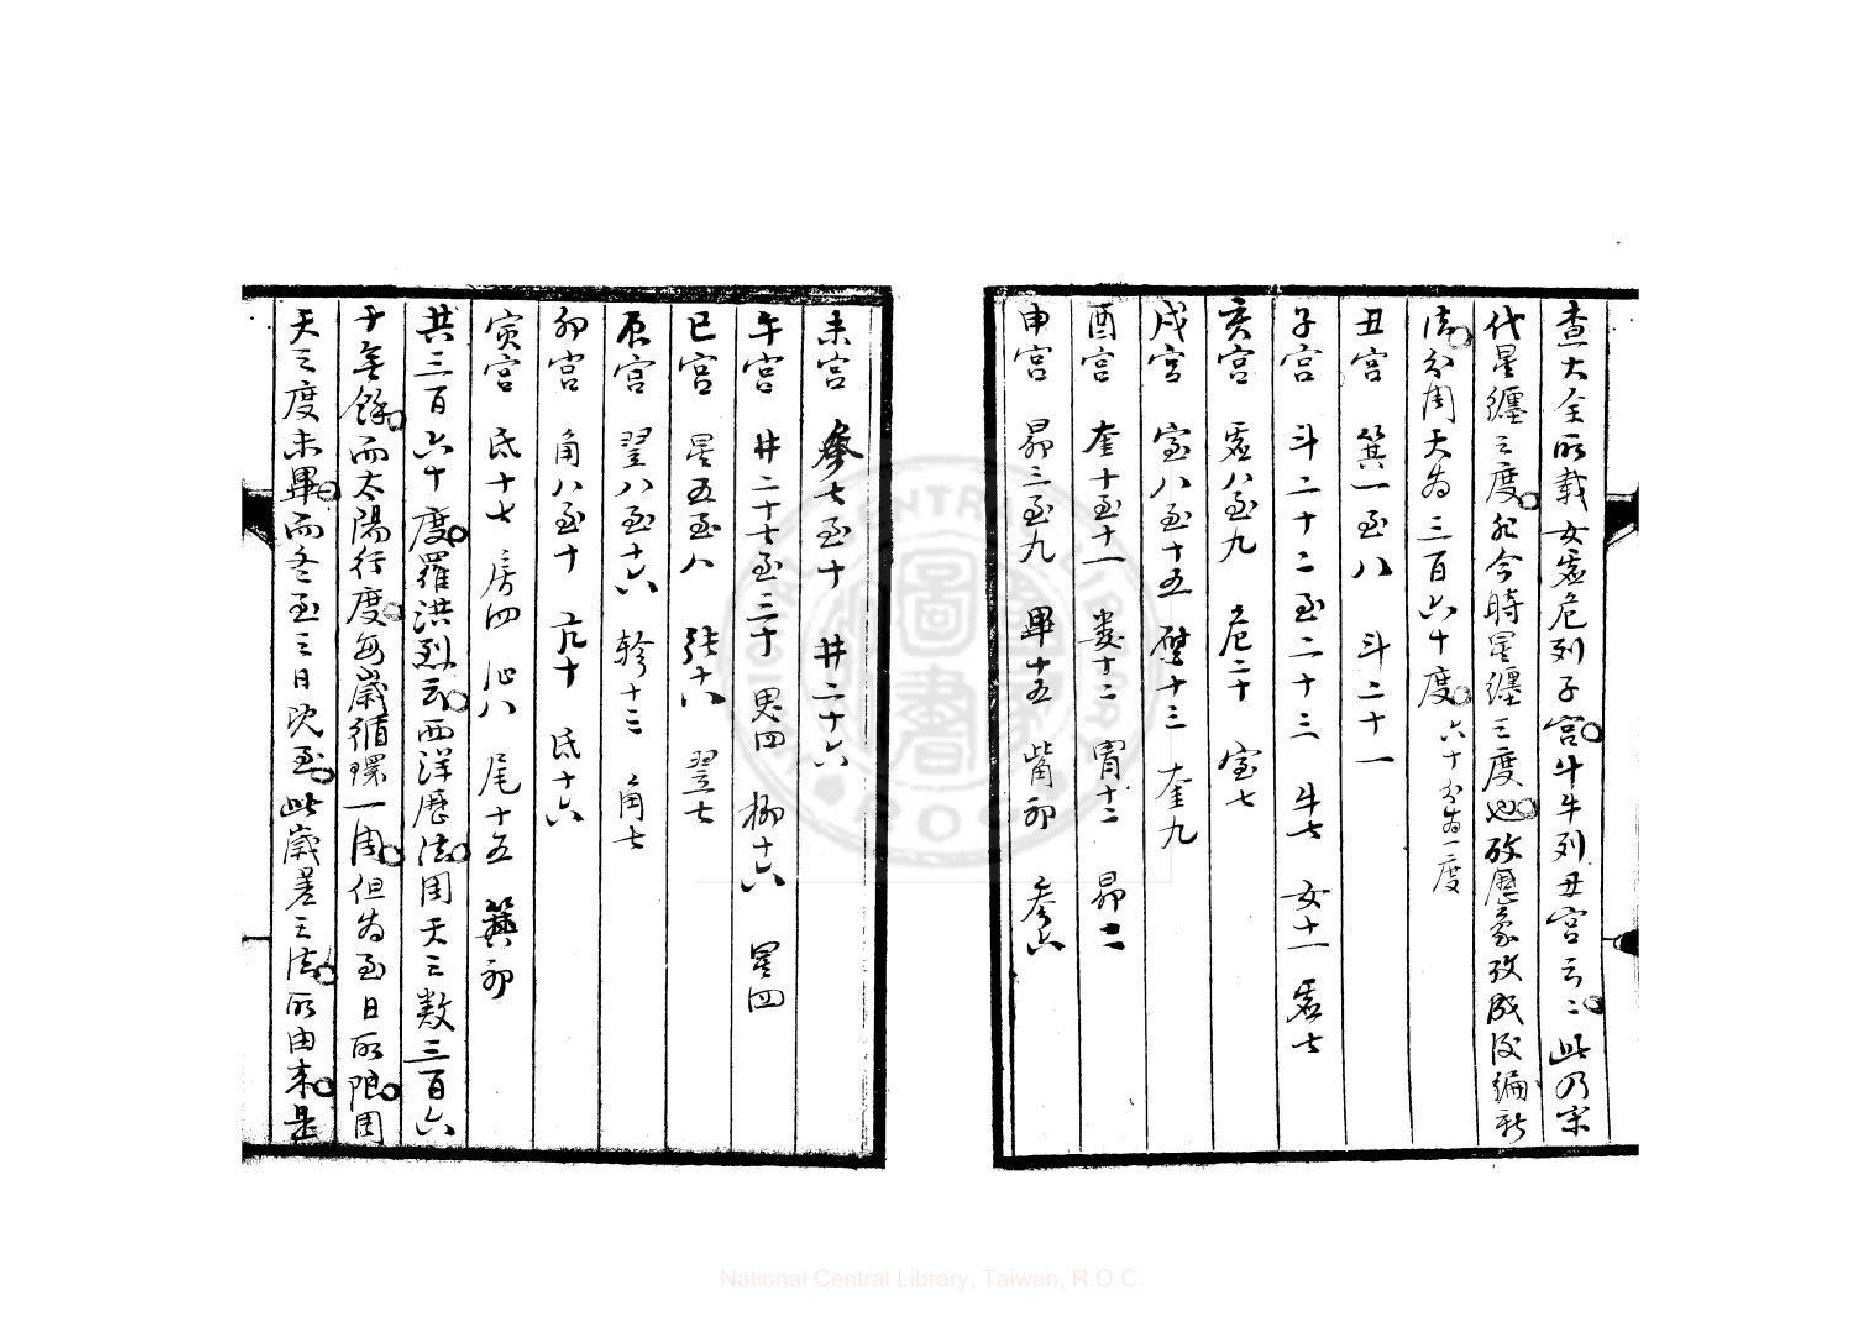 查大全所載女虛危列子宮斗牛列丑宮云〻此乃宋
代星纏之度非今時星纏之度也攷歷象攷成後編新
法分周天為三百六十度六十分為一度
丑宮 箕一至八 斗二十一
子宮 斗二十二至二十三 牛七 女十一 虛七
亥宮 虛八至九 危二十 室七
戌宮 室八至十五 壁十三 奎九
酉宮 奎十至十一 婁十二 胃十二 昴二
申宮 昴三至九 畢十五 觜初 參六
未宮 參七至十 井二十六
午宮 井二十七至三十 鬼四 柳十六 星四
巳宮 星五至八 張十八 翌七
辰宮 翌八至十六 軫十二 角七
卯宮 角八至十 亢十 氐十六
寅宮 氐十七 房四 心八 尾十五 箕初
共三百六十度羅洪烈云西洋歷法周天之數三百六
十無餘而太陽行度每歲循環一周但為至日所限周
天之度未畢而冬至之日已至此歲差之法所由來是
National Central Library, Taiwan, R.O.C.